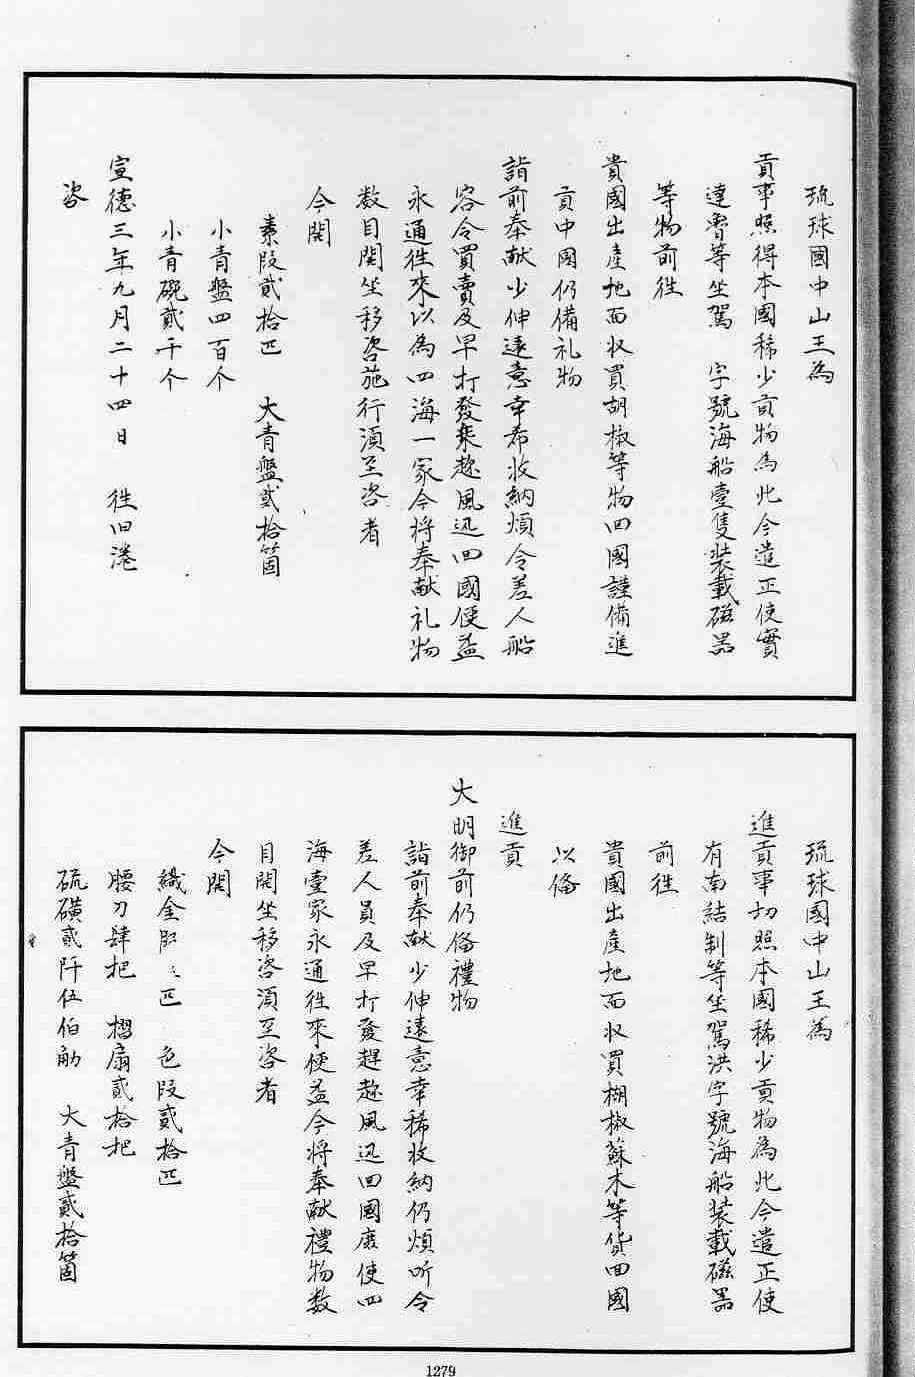 琉球國中山王為
貢事照得本國稀少貢物為此今遣正使實
達魯等坐駕　字號海船壹隻装載磁器
等物前徃
貴國出產地面收買胡椒等物回國謹備進
貢中國仍備礼物
詣前奉献少伸遠意幸希收納煩令差人船
容令買賣及早打發乘趂風迅回國便益
永通徃來以為四海一家今将奉献礼物
数目開坐移咨施行湏至咨者
今開
素段貳拾匹　大青盤貳拾箇
小青盤四百个
小青碗貳千个
宣德三年九月二十四日　徃旧港
咨
琉球國中山王為
進貢事切照本國稀少貢物為此今遣正使
有南結制等坐駕洪字號海船装載磁器
前徃
貴國出產地面收買楜椒蘇木等貨回國
以俻
進貢
大明御前仍俻禮物
詣前奉献少伸遠意幸稀收納仍煩听令
差人員及早打發趕趂風迅回國庻使四
海壹家永通徃來便益今将奉献禮物数
目開坐移咨湏至咨者
今開
織金段　匹　色段貳拾匹
腰刀肆把　摺扇貳拾把
硫磺貳阡伍伯觔　大青盤貳拾箇
1279